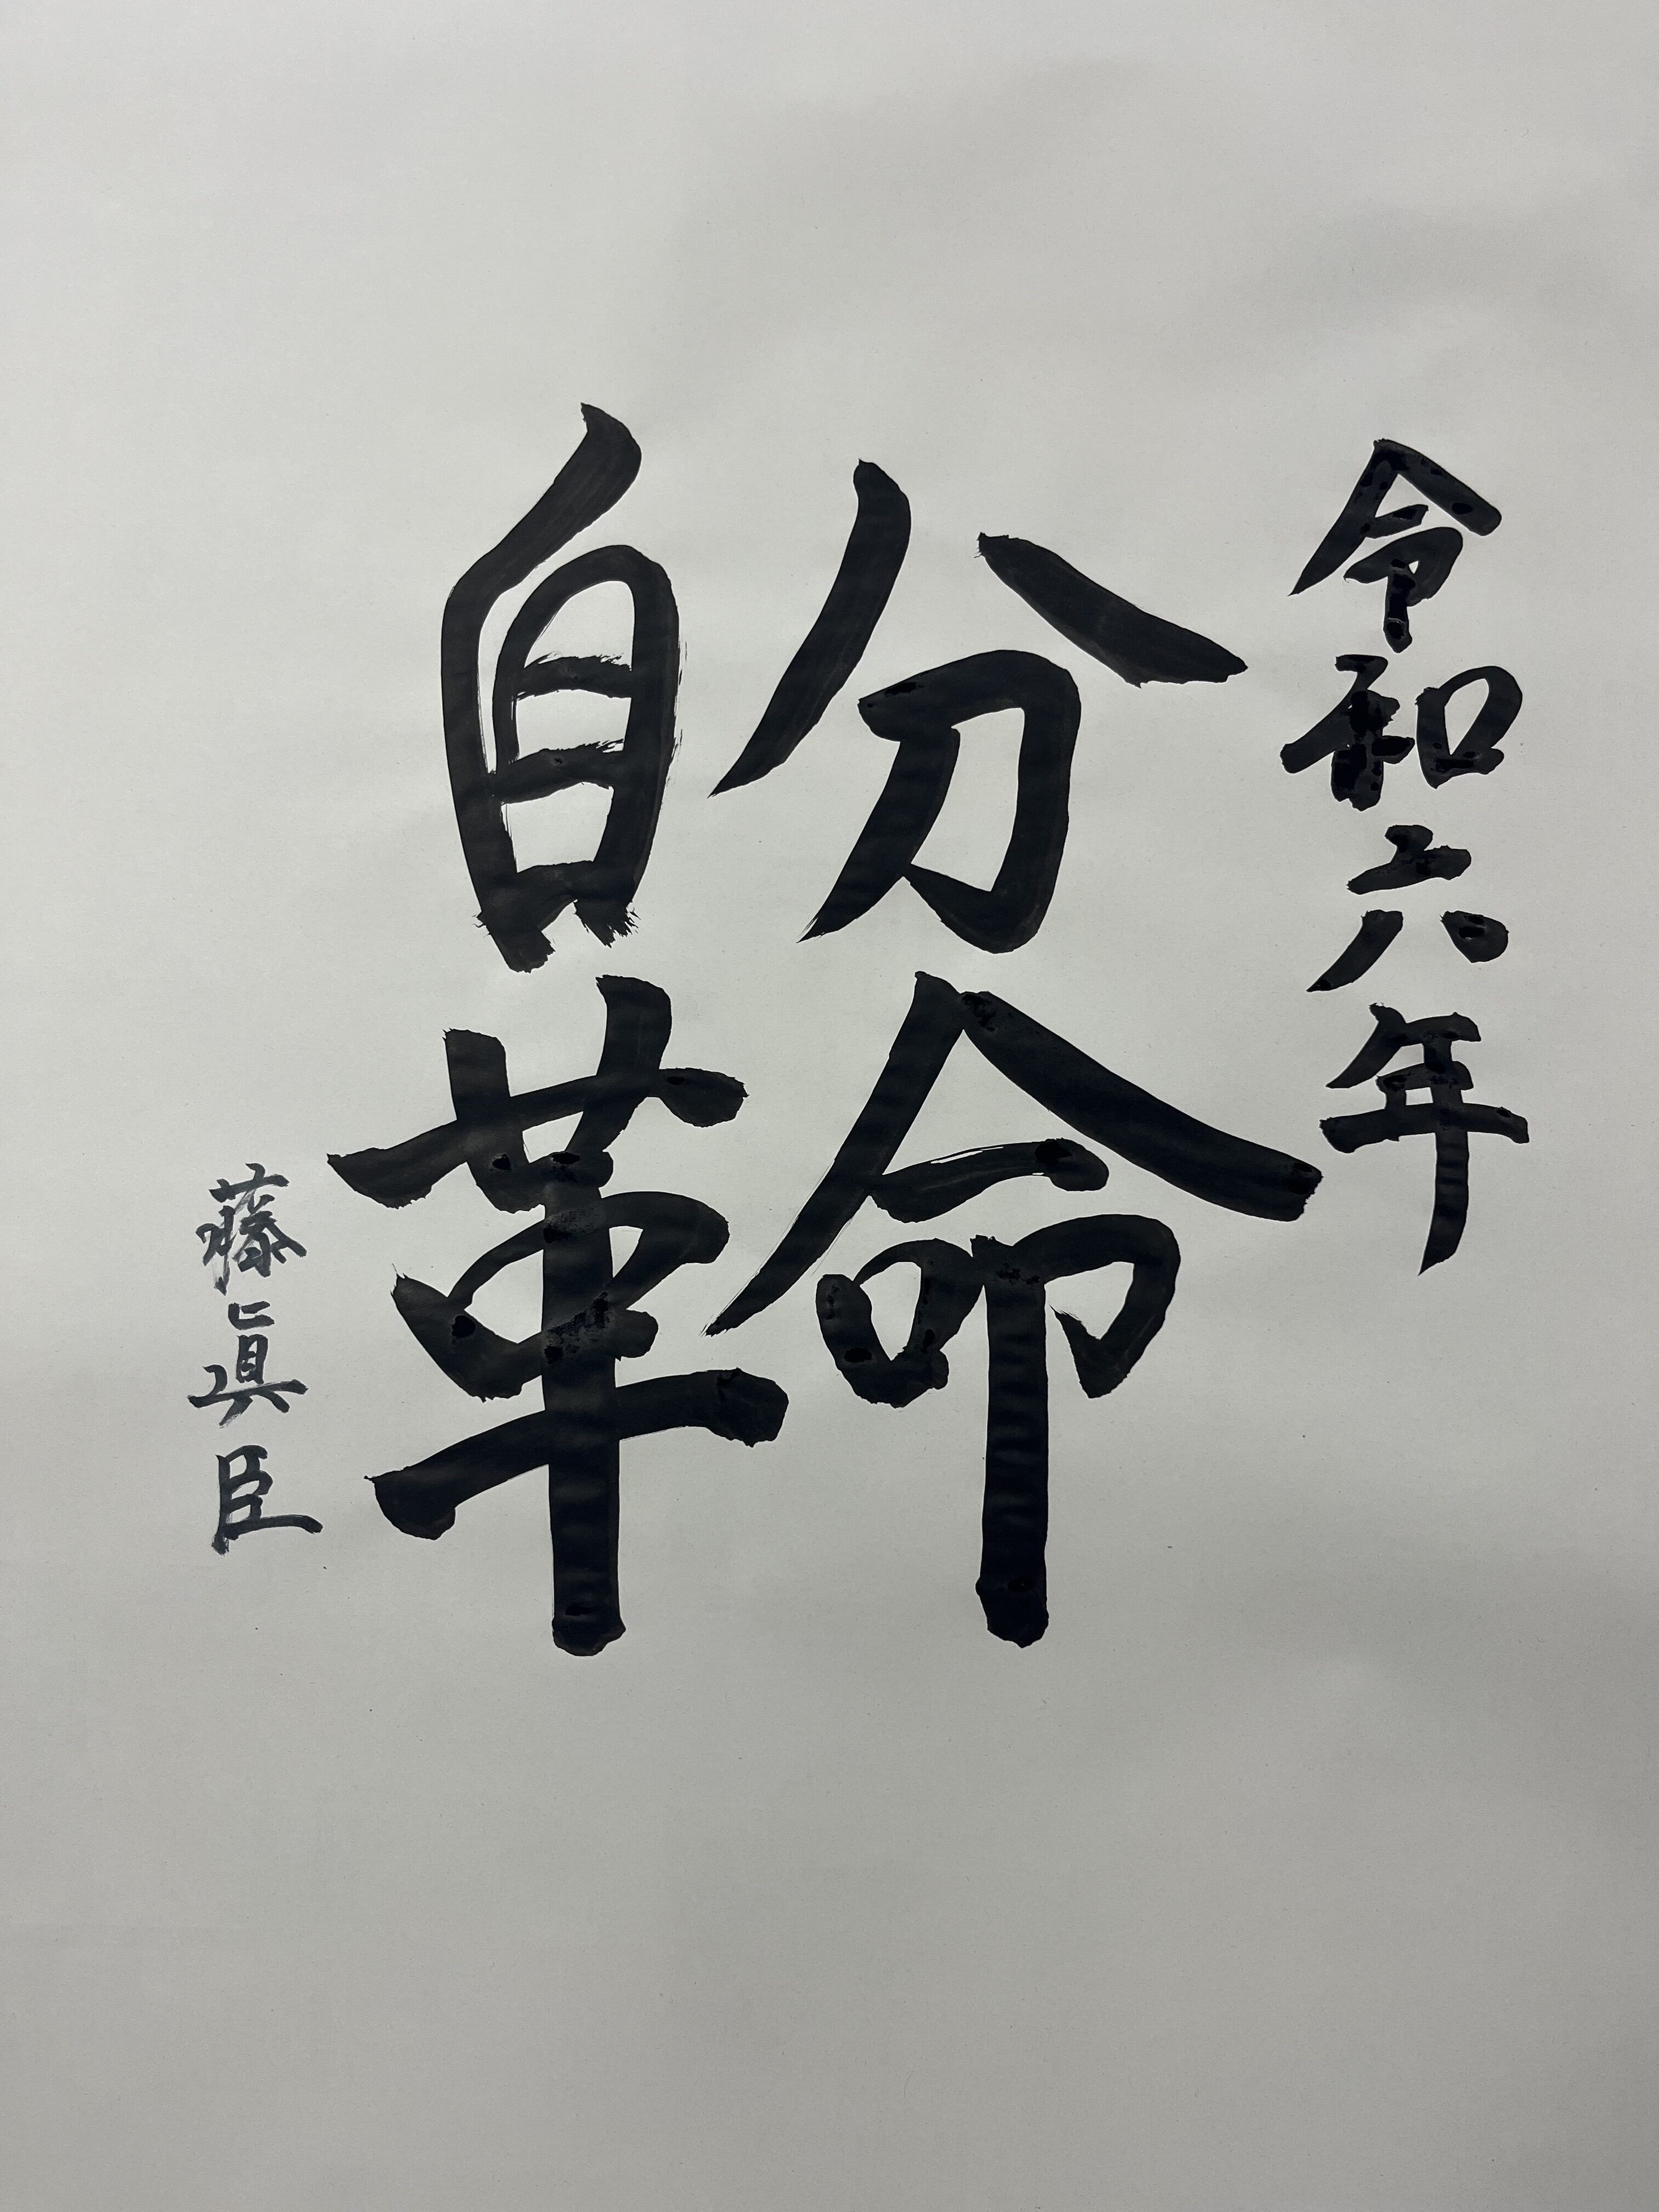 令和六年
自分
革命
藤眞臣